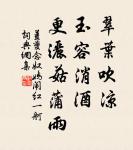 翠葉吹涼
玉容消酒
更灑菰蒲雨
姜夔念奴嬌鬧紅一舸
詞典網集